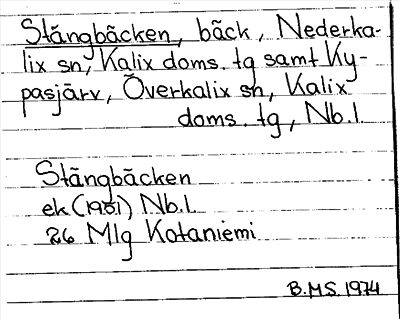 Stängbäcken, bäck, Nederka-
lix sn, Kalix doms. tg samt Ky-
pasjärv, Överkalix sn, Kalix
doms. tg, Nb.l.
Stängbäcken
ek (1951) Nb.l.
26 Mlg Kotaniemi
B.M.S. 1974